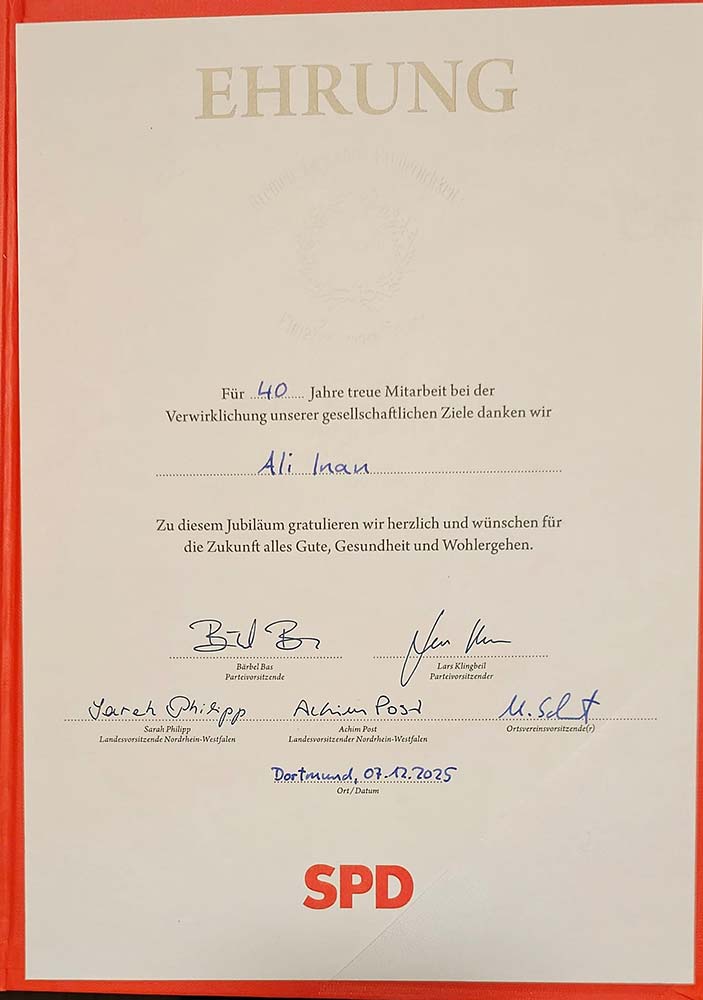 EHRUNG
Für 40 Jahre treue Mitarbeit bei der
Verwirklichung unserer gesellschaftlichen Ziele danken wir
Ali Inan
Zu diesem Jubiläum gratulieren wir herzlich und wünschen für
die Zukunft alles Gute, Gesundheit und Wohlergehen.
Bärbel Bas
Parteivorsitzende
Lars Klingbeil
Parteivorsitzender
Sarah Philipp
Achim Post
Sarah Philipp
Landesvorsitzende Nordrhein-Westfalen
Achim Post
Landesvorsitzender Nordrhein-Westfalen
Ortsvereinsvorsitzende(r)
Dortmund, 07.12.2025
Ort/Datum
SPD